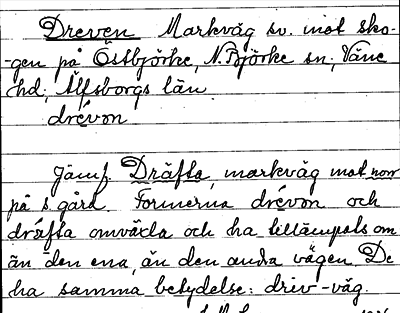 Dreven Markväg sv. mot sko-
-gen på Östbjörke, N. Björke sn; Väne
hd; Älfsborgs län
drévon
Jämf. Dräfta, markväg mot norr
på s. gård. Formerna drévon och
dräfta omväxla och ha tillämpats om
än den ena, än den andra vägen. De
ha samma betydelse: driv-väg.